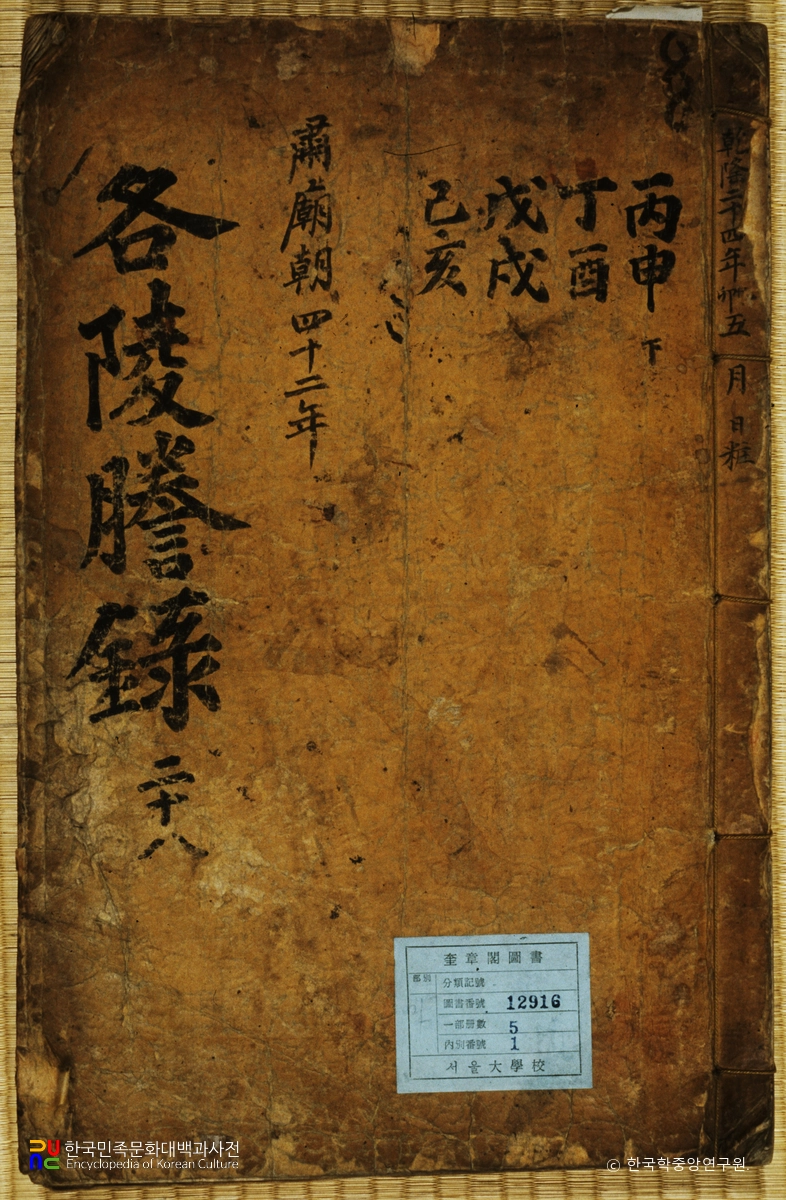 乾隆二十四年卯五月日粧
丙申下
丁酉
戊戌
己亥
肅廟朝四十二年
各陵謄錄二十八
奎章閣圖書
部別
分類記號
圖書番號 12916
一部冊數 5
內別番號 1
서울大學校
한국민족문화대백과사전
Encyclopedia of Korean Culture
ⓒ 한국학중앙연구원